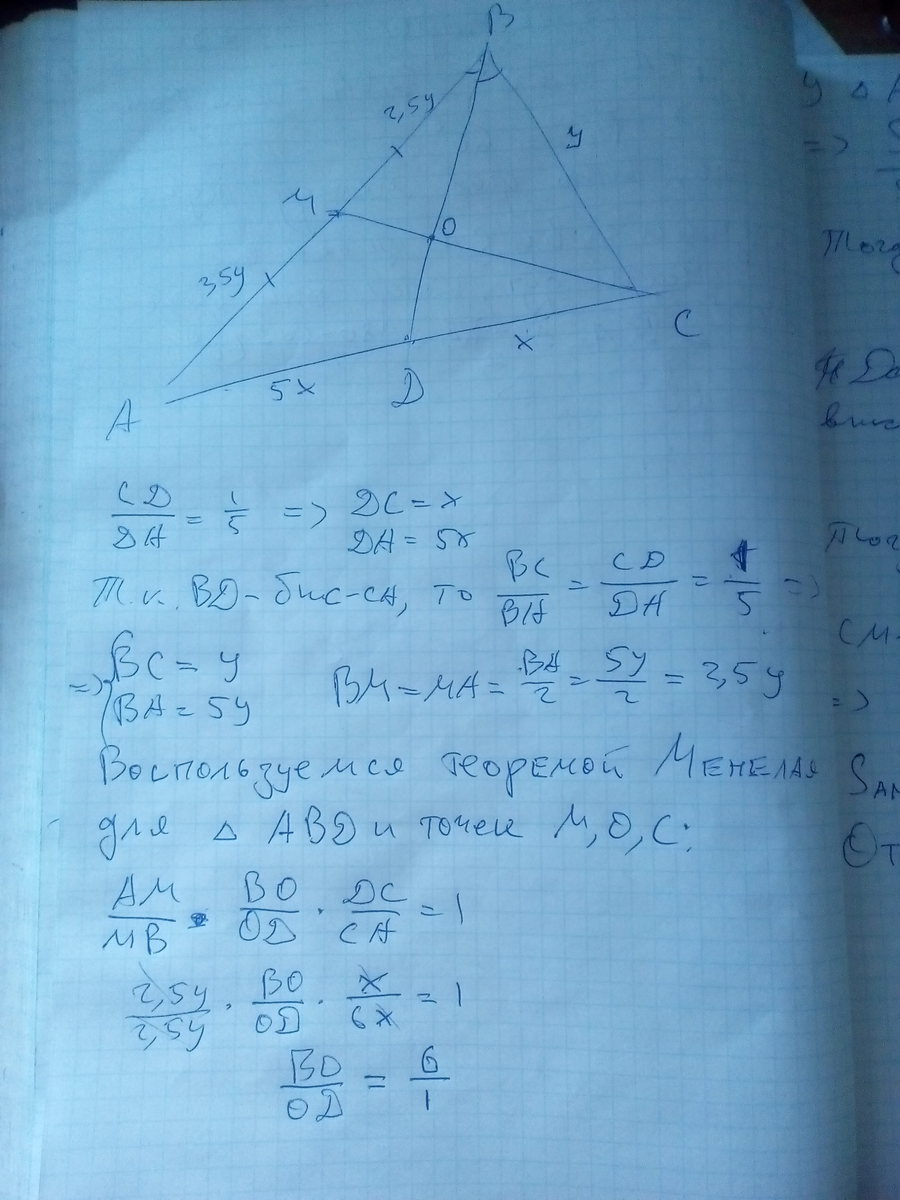 B
2,5y
y
M
O
2,5y
C
x
5x
D
A
CD/DA = 1/5 => DC = x
DA = 5x
Т.к. BD - бис-са, то BC/BA = CD/DA = 1/5 =>
=> { BC = y
BA = 5y
BM = MA = BA/2 = 5y/2 = 2,5y
Воспользуемся теоремой Менелая
для △ ABD и точек M, O, C:
AM/MB · BO/OD · DC/CA = 1
2,5y/2,5y · BO/OD · x/6x = 1
BO/OD = 6/1
У △ A
=>
Тогд
Да
впис
=>